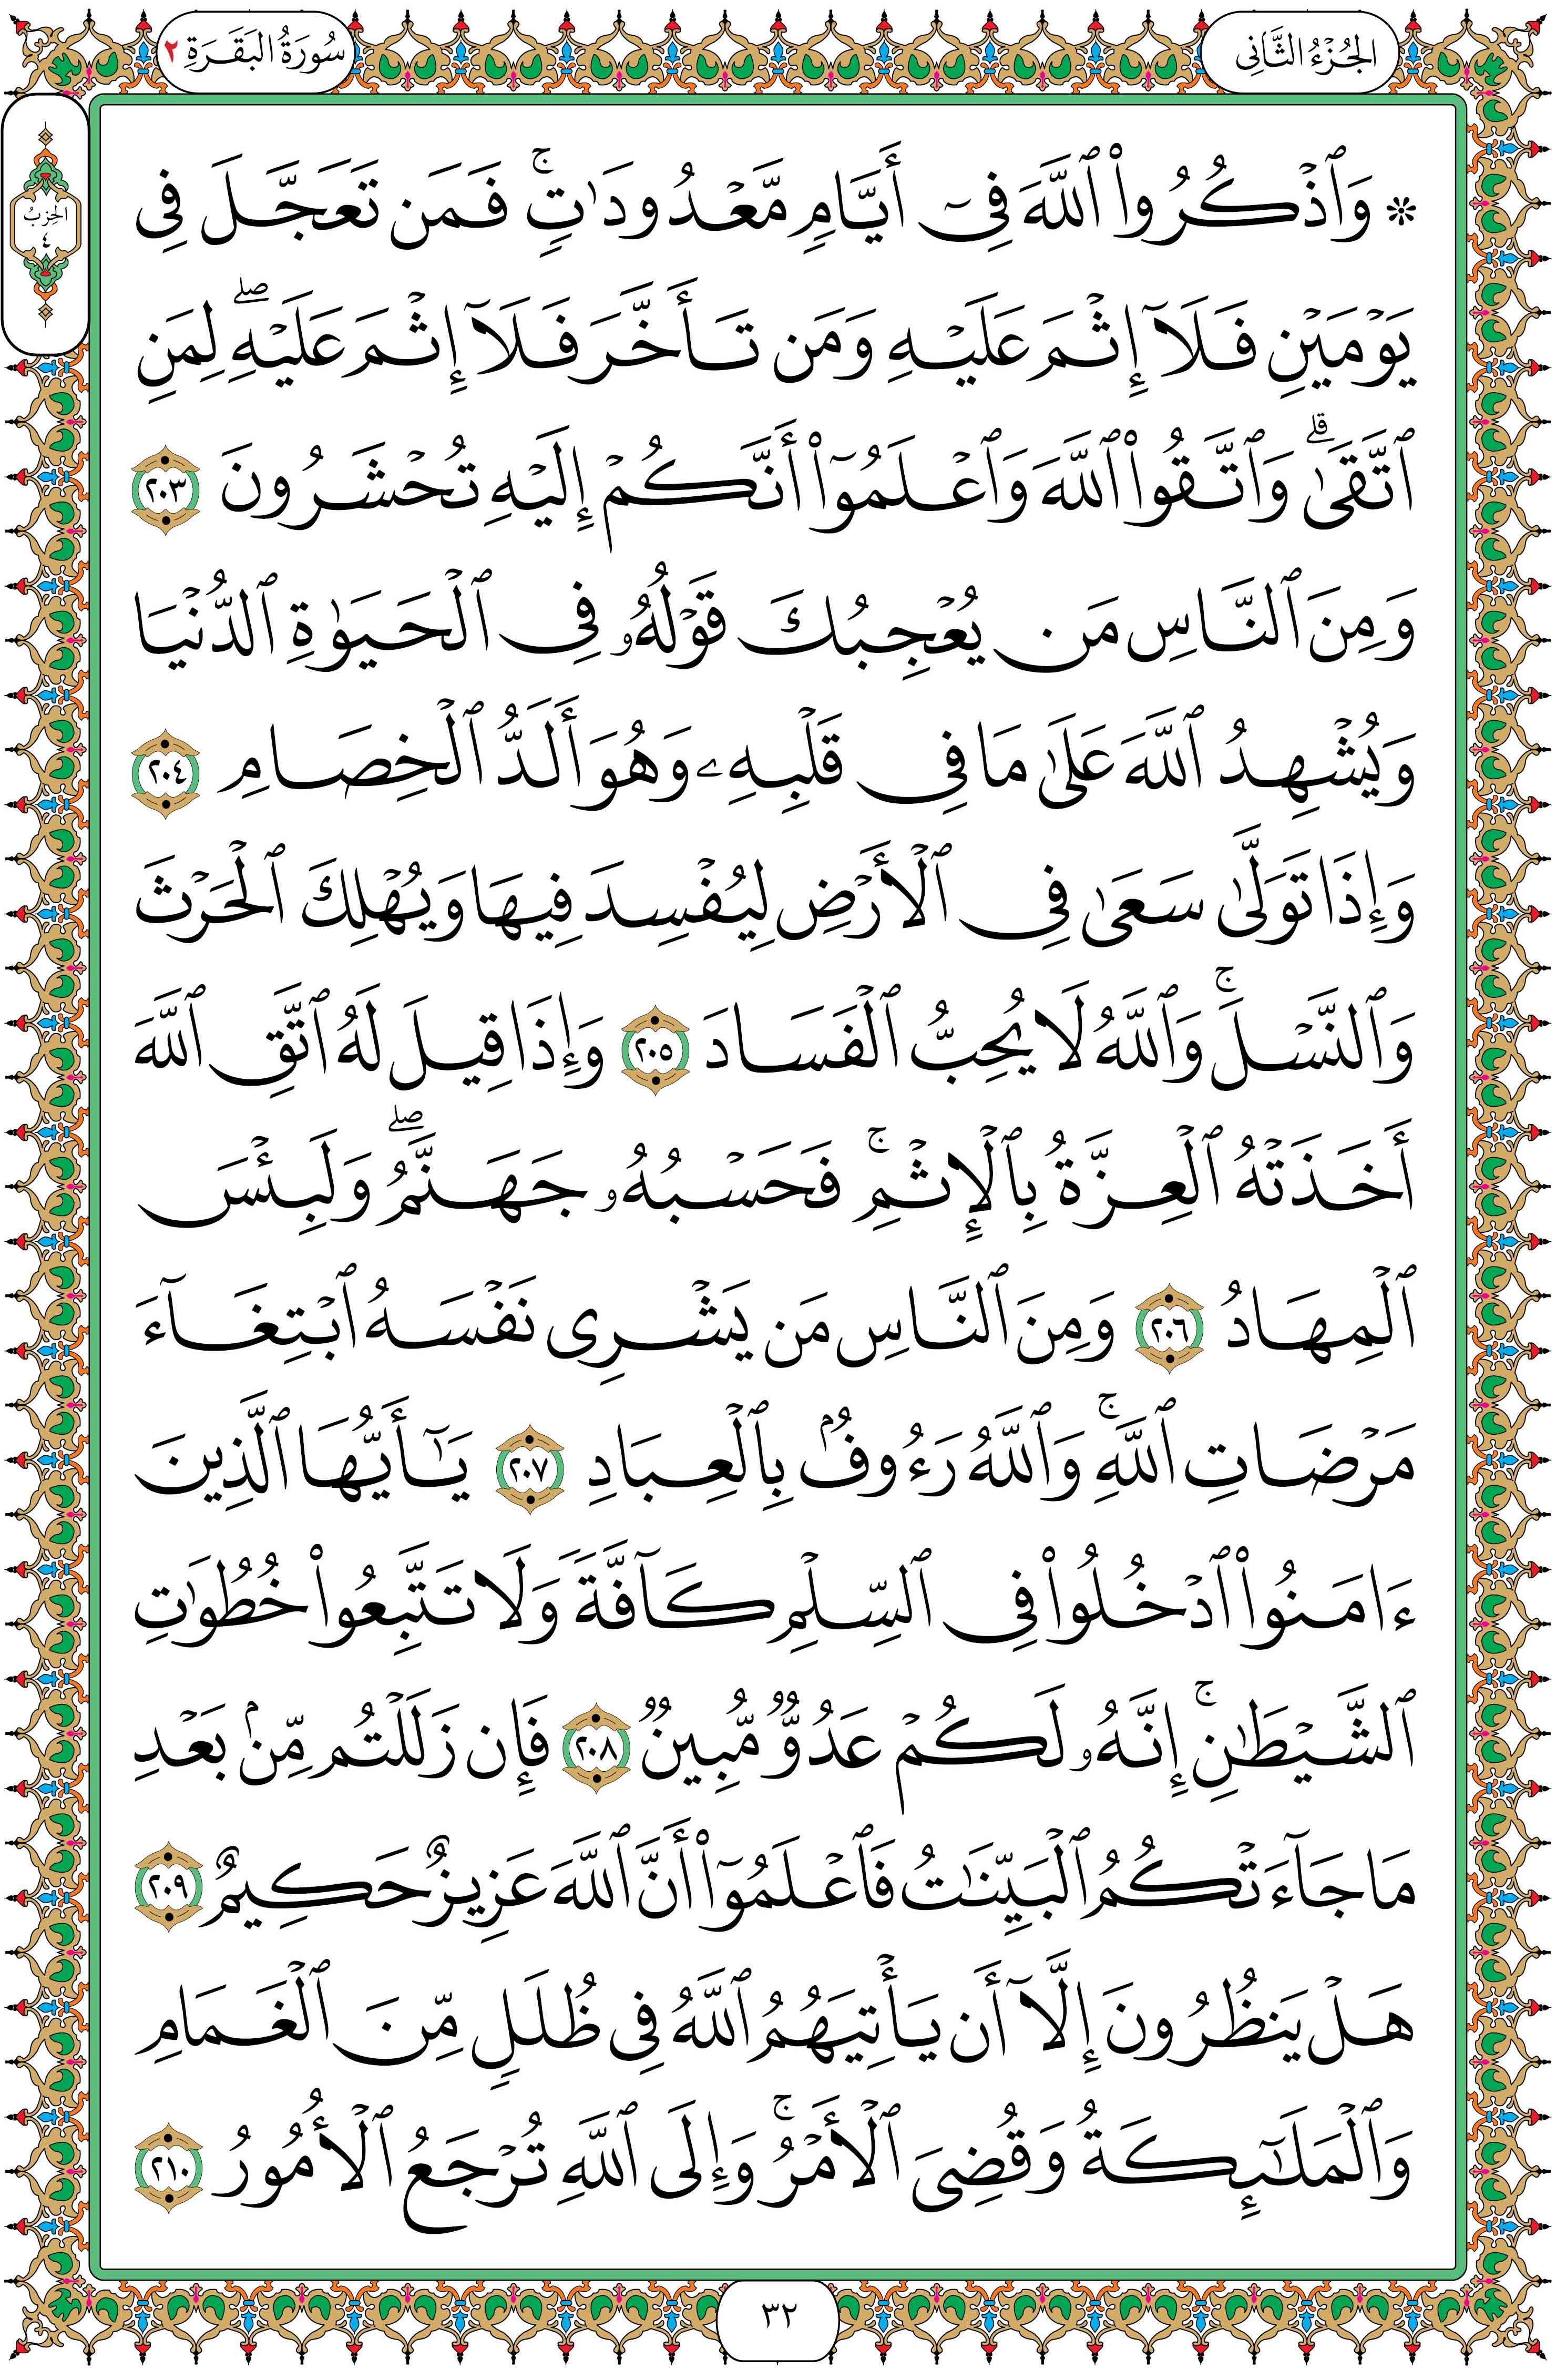 الجُزْءُ الثَّانِي
سُورَةُ البَقَرَةِ ٢
الحِزبُ
٤
۞ وَٱذْكُرُوا۟ ٱللَّهَ فِىٓ أَيَّامٍ مَّعْدُودَٰتٍ ۚ فَمَن تَعَجَّلَ فِى
يَوْمَيْنِ فَلَآ إِثْمَ عَلَيْهِ وَمَن تَأَخَّرَ فَلَآ إِثْمَ عَلَيْهِ ۖ لِمَنِ
ٱتَّقَىٰ ۗ وَٱتَّقُوا۟ ٱللَّهَ وَٱعْلَمُوٓا۟ أَنَّكُمْ إِلَيْهِ تُحْشَرُونَ ٢٠٣
وَمِنَ ٱلنَّاسِ مَن يُعْجِبُكَ قَوْلُهُۥ فِى ٱلْحَيَوٰةِ ٱلدُّنْيَا
وَيُشْهِدُ ٱللَّهَ عَلَىٰ مَا فِى قَلْبِهِۦ وَهُوَ أَلَدُّ ٱلْخِصَامِ ٢٠٤
وَإِذَا تَوَلَّىٰ سَعَىٰ فِى ٱلْأَرْضِ لِيُفْسِدَ فِيهَا وَيُهْلِكَ ٱلْحَرْثَ
وَٱلنَّسْلَ ۗ وَٱللَّهُ لَا يُحِبُّ ٱلْفَسَادَ ٢٠٥ وَإِذَا قِيلَ لَهُ ٱتَّقِ ٱللَّهَ
أَخَذَتْهُ ٱلْعِزَّةُ بِٱلْإِثْمِ ۚ فَحَسْبُهُۥ جَهَنَّمُ ۖ وَلَبِئْسَ
ٱلْمِهَادُ ٢٠٦ وَمِنَ ٱلنَّاسِ مَن يَشْرِى نَفْسَهُ ٱبْتِغَآءَ
مَرْضَاتِ ٱللَّهِ ۚ وَٱللَّهُ رَءُوفٌۢ بِٱلْعِبَادِ ٢٠٧ يَٰٓأَيُّهَا ٱلَّذِينَ
ءَامَنُوا۟ ٱدْخُلُوا۟ فِى ٱلسِّلْمِ كَآفَّةً وَلَا تَتَّبِعُوا۟ خُطُوَٰتِ
ٱلشَّيْطَٰنِ ۚ إِنَّهُۥ لَكُمْ عَدُوٌّ مُّبِينٌ ٢٠٨ فَإِن زَلَلْتُم مِّنۢ بَعْدِ
مَا جَآءَتْكُمُ ٱلْبَيِّنَٰتُ فَٱعْلَمُوٓا۟ أَنَّ ٱللَّهَ عَزِيزٌ حَكِيمٌ ٢٠٩
هَلْ يَنظُرُونَ إِلَّآ أَن يَأْتِيَهُمُ ٱللَّهُ فِى ظُلَلٍ مِّنَ ٱلْغَمَامِ
وَٱلْمَلَٰٓئِكَةُ وَقُضِىَ ٱلْأَمْرُ ۚ وَإِلَى ٱللَّهِ تُرْجَعُ ٱلْأُمُورُ ٢١٠
٣٢